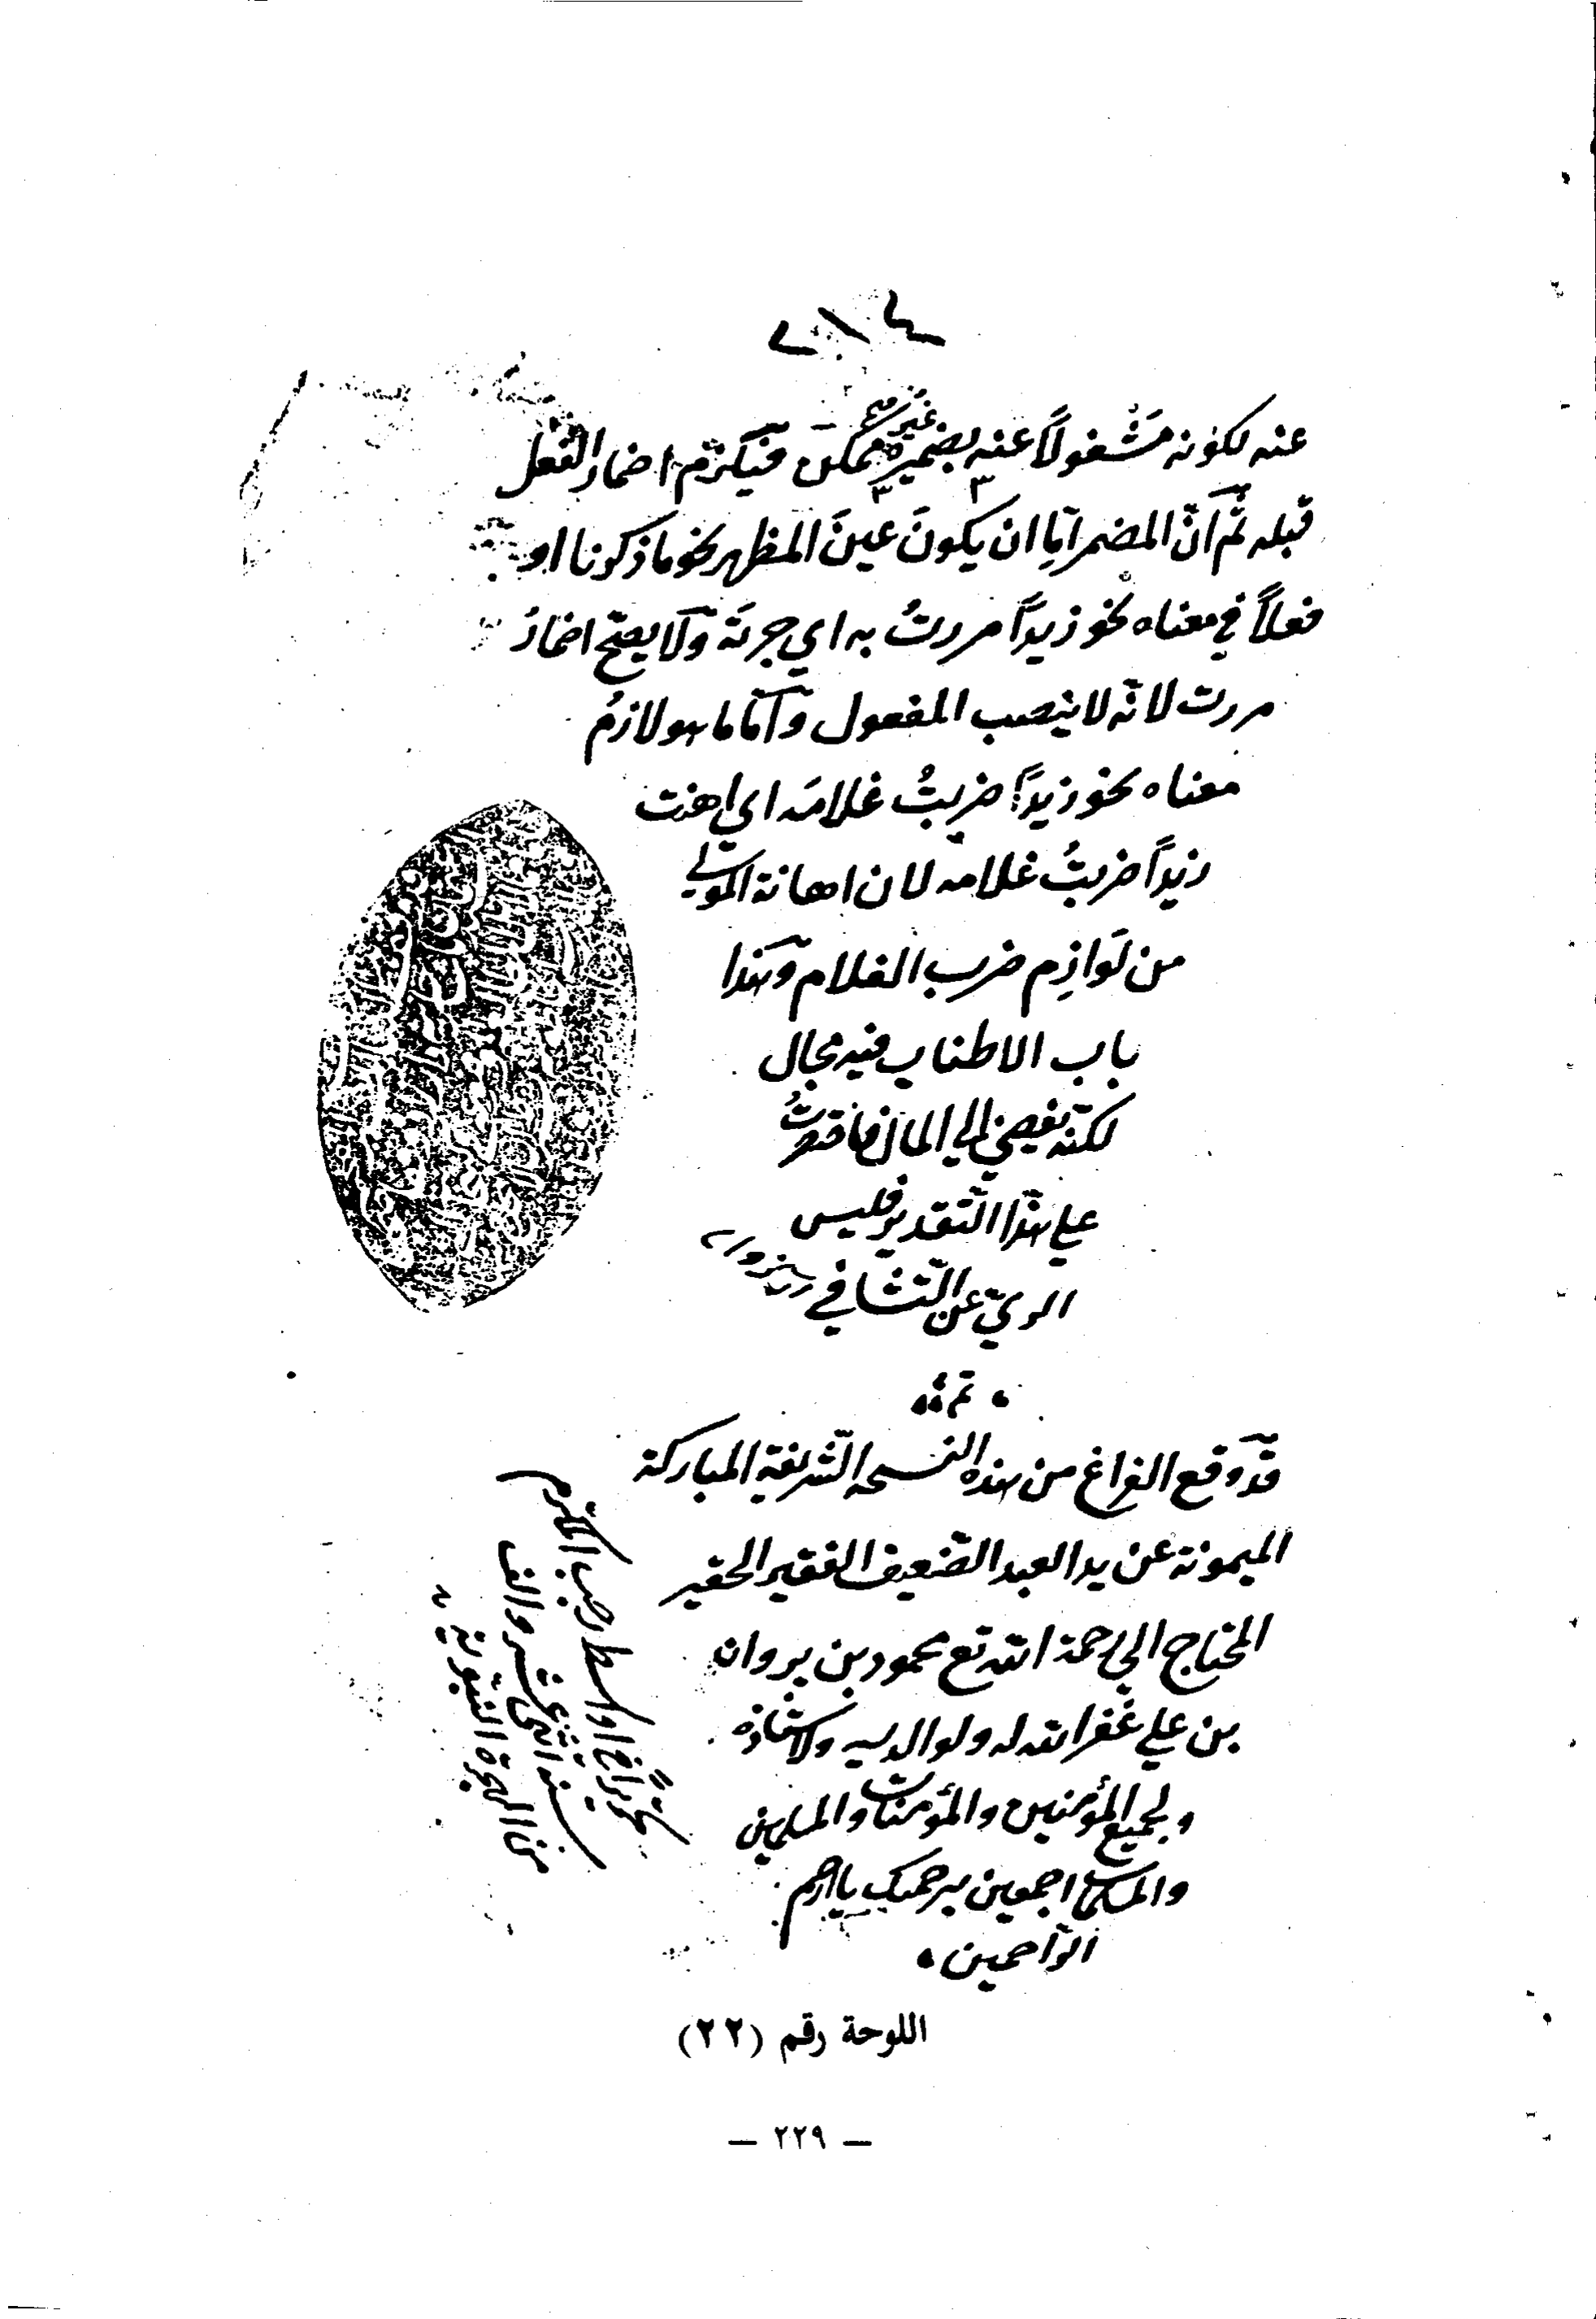 ٢١٤
عنه لكونه مَشْغولاً عنه بضميره غير ممكن فيلزم اضمار الفعل
قبله ثم انّ المضمر امّا ان يكونَ عينَ المظهر نحو ما ذكرنا او
فعلاً في معناه نحو زيداً مررتُ به اي جزتُ ولا يصح اضمارُ
مررت لانّه لا ينصب المفعول وامّا ما هو لازمُ
معناه نحو زيداً ضربتُ غلامَه اي اهنت
زيداً ضربتُ غلامه لان اهانة المولى
من لَوازِم ضرب الغلام وهذا
باب الاطناب فيه مجال
لكنّه يفضي الي الملال فاقتصرتُ
علي هذا التّقدير فليس
الريّ عن التّشافي
تم
قد وقع الفراغ من هذه النسخه الشّريفة المباركة
الميمونة عن يد العبد الضّعيف الفقير الحقير
المحتاج الي رحمة الله تع محمود بن پروان
بن علي غفر الله له ولوالديه ولاستاذه
ولجميع المؤمنين والمؤمنات والمسلمين
والمسلمات اجمعين برحمتك يا ارحم
الرّاحمين
اواسط رجب المكرم
سنة اثني عشر والف
من الهجرة النبوية
اللوحة رقم (٢٢)
— ٢٢٩ —